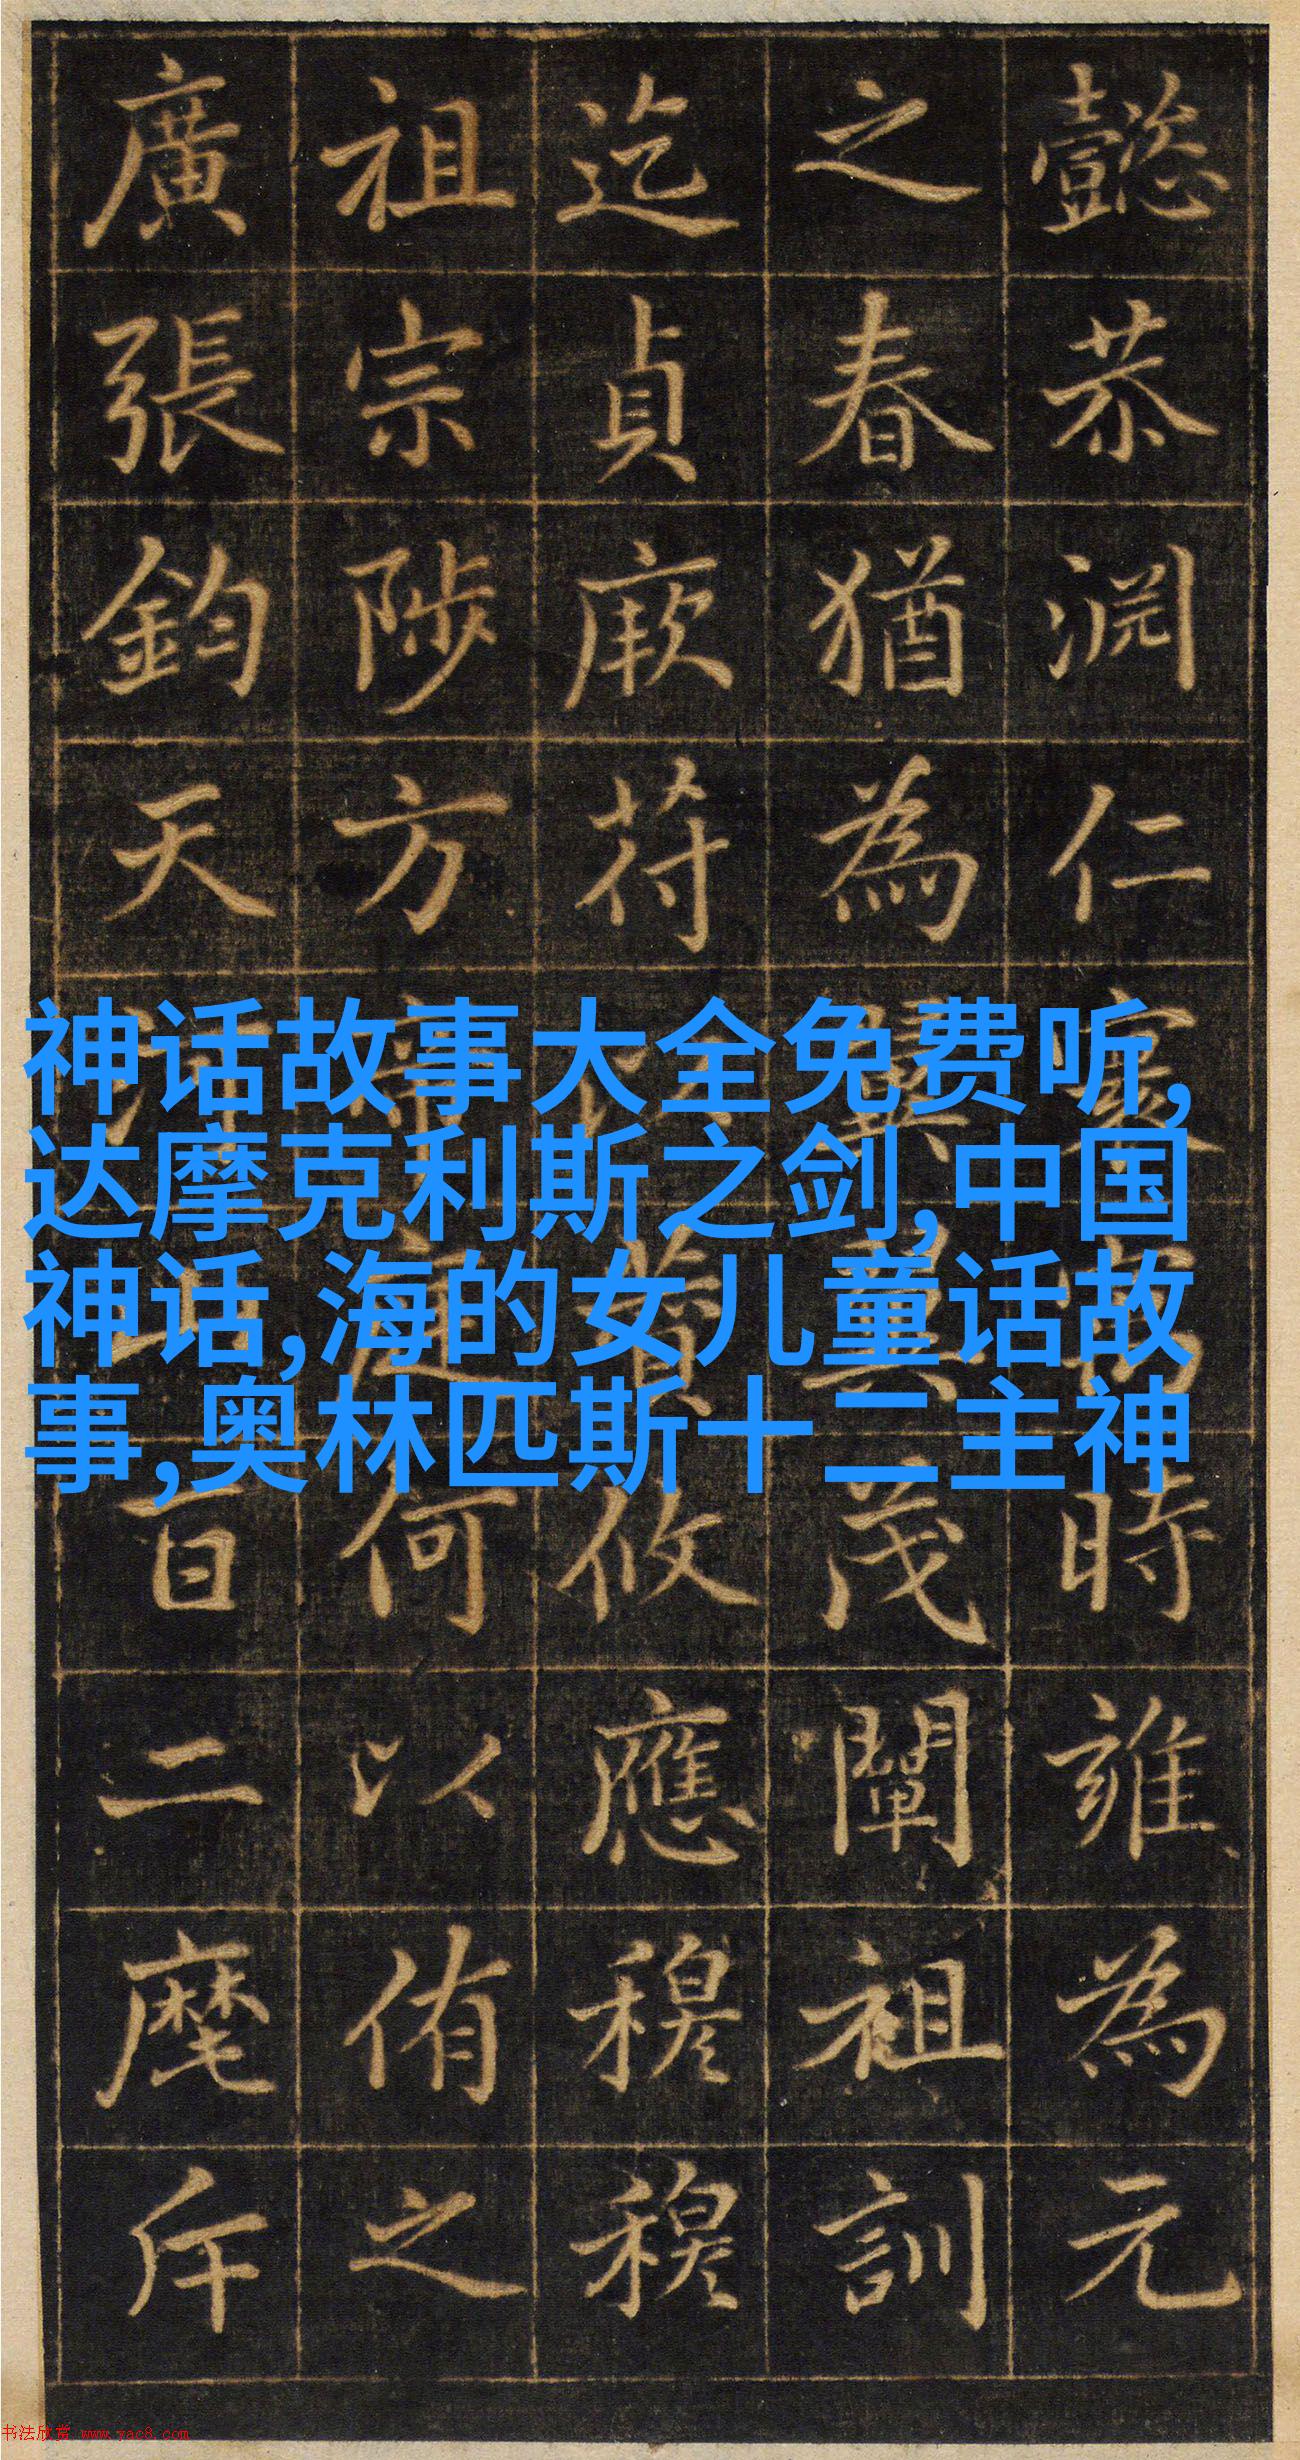 懿恭淵仁時雍為元
之春猶為茂闡祖訓
迄貞厥苻攸應穆穆
祖宗陟方庭何以侑之
廣張鈞天百二麾斥
神话故事大全免费听,
达摩克利斯之剑,中国
神话,海的女儿童话故
事,奥林匹斯十二主神
书法欣赏 www.yac8.com